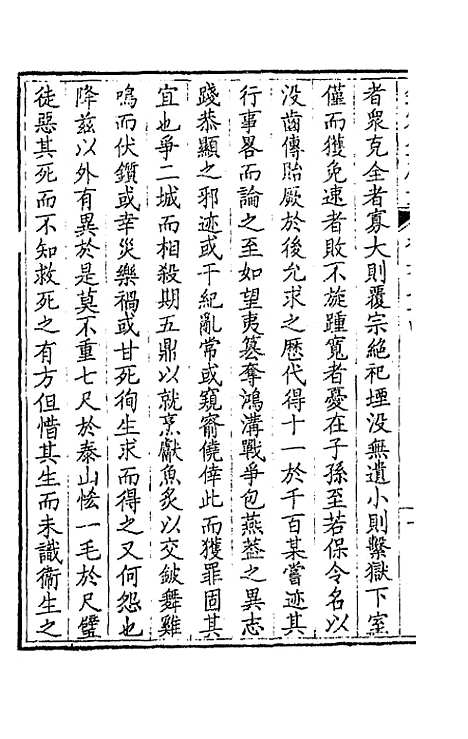 者衆克全者寡大則覆宗絶祀堙没無遺小則繫獄下室
僅而獲免速者敗不旋踵寬者憂在子孫至若保令名以
没齒傳貽厥於後允求之歷代得十一於千百某嘗迹其
行事畧而論之至如望夷簒奪鴻溝戰爭包燕葢之異志
踐恭顯之邪迹或干紀亂常或窺窬僥倖此而獲罪固其
宜也爭二城而相殺期五鼎以就烹獻魚炙以交鈹舞雞
鳴而伏鑕或幸災樂禍或甘死徇生求而得之又何怨也
降兹以外有異於是莫不重七尺於泰山恡一毛於尺璧
徒惡其死而不知救死之有方但惜其生而未識衞生之